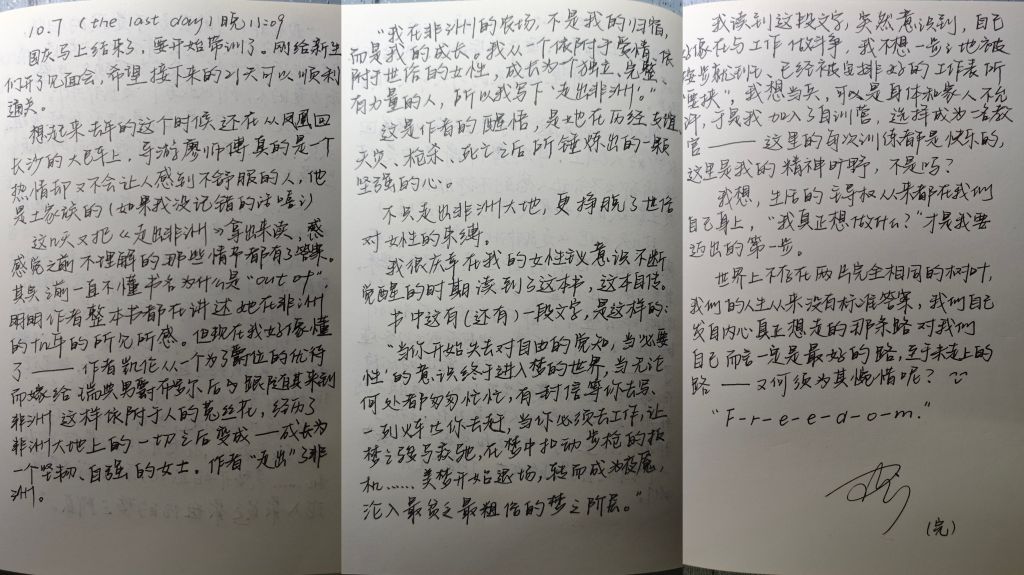 10.7 (the last day) 晚 11:09
国庆马上结束了，要开始带训了。刚给新生
们开了见面会，希望接下来的21天可以顺利
通关。
想起来去年的这个时候还在从凤凰回
长沙的大巴车上，导游廖师傅真的是一个
热情却又不会让人感到不舒服的人，他
是土家族的（如果我没记错的话嘻）
这几天又把《走出非洲》拿出来读，感
感觉之前不理解的那些情节都有了答案。
其实之前一直不懂书名为什么是"out of"，
明明作者整本书都在讲述她在非洲
的十几年的所见所感。但现在我好像懂
了——作者凯伦从一个为了爵位的优待
而嫁给瑞典男爵布里尔后又跟随其来到
非洲 这样依附于人的菟丝花，经历了
非洲大地上的一切之后变成——成长为
一个坚韧、自强的女士。作者"走出"了非
洲。
"我在非洲的农场，不是我的归宿，
而是我的成长。我从一个依附于爱情、依
附于世俗的女性，成长为一个独立、完整、
有力量的人，所以我写下'走出非洲'。"
这是作者的醒悟，是她在历经
天灾、枪杀、死亡之后所锤炼出的一颗
坚强的心。
不只走出非洲大地，更挣脱了世俗
对女性的束缚。
我很庆幸在我的女性主义意识不断
觉醒的时期读到了这本书，这本自传。
书中这有（还有）一段文字，是这样的：
"当你开始失去对自由的觉知，当'必要
性'的意识终于进入梦的世界，当无论
何处都匆匆忙忙，有一封信等你去写、
一列火车也你去赶，当你必须去工作，让
梦之强马疾驰，在梦中扣动步枪的扳
机……美梦开始退场，转而成为夜魇，
沦入最贫乏最粗俗的梦之阶层。"
我读到这段文字，突然意识到，自己
好像在与工作做斗争，我不想一步步地被
按部就班、已经被安排好的工作表所
"要挟"，我想当兵，可以是身体和家人不允
许，于是我加入了自训营，选择成为一名教
官——这里的每次训练都是快乐的，
这里是我的精神旷野，不是吗？
我想，生活的主导权从来都在我们
自己身上，"我真正想做什么？"才是我要
迈出的第一步。
世界上不存在两片完全相同的树叶，
我们的人生从来没有标准答案，我们自己
发自内心真正想走的那条路对我们
自己而言一定是最好的路，至于未走上的
路——又何须为其惋惜呢？
"F-r-e-e-d-o-m."
（完）